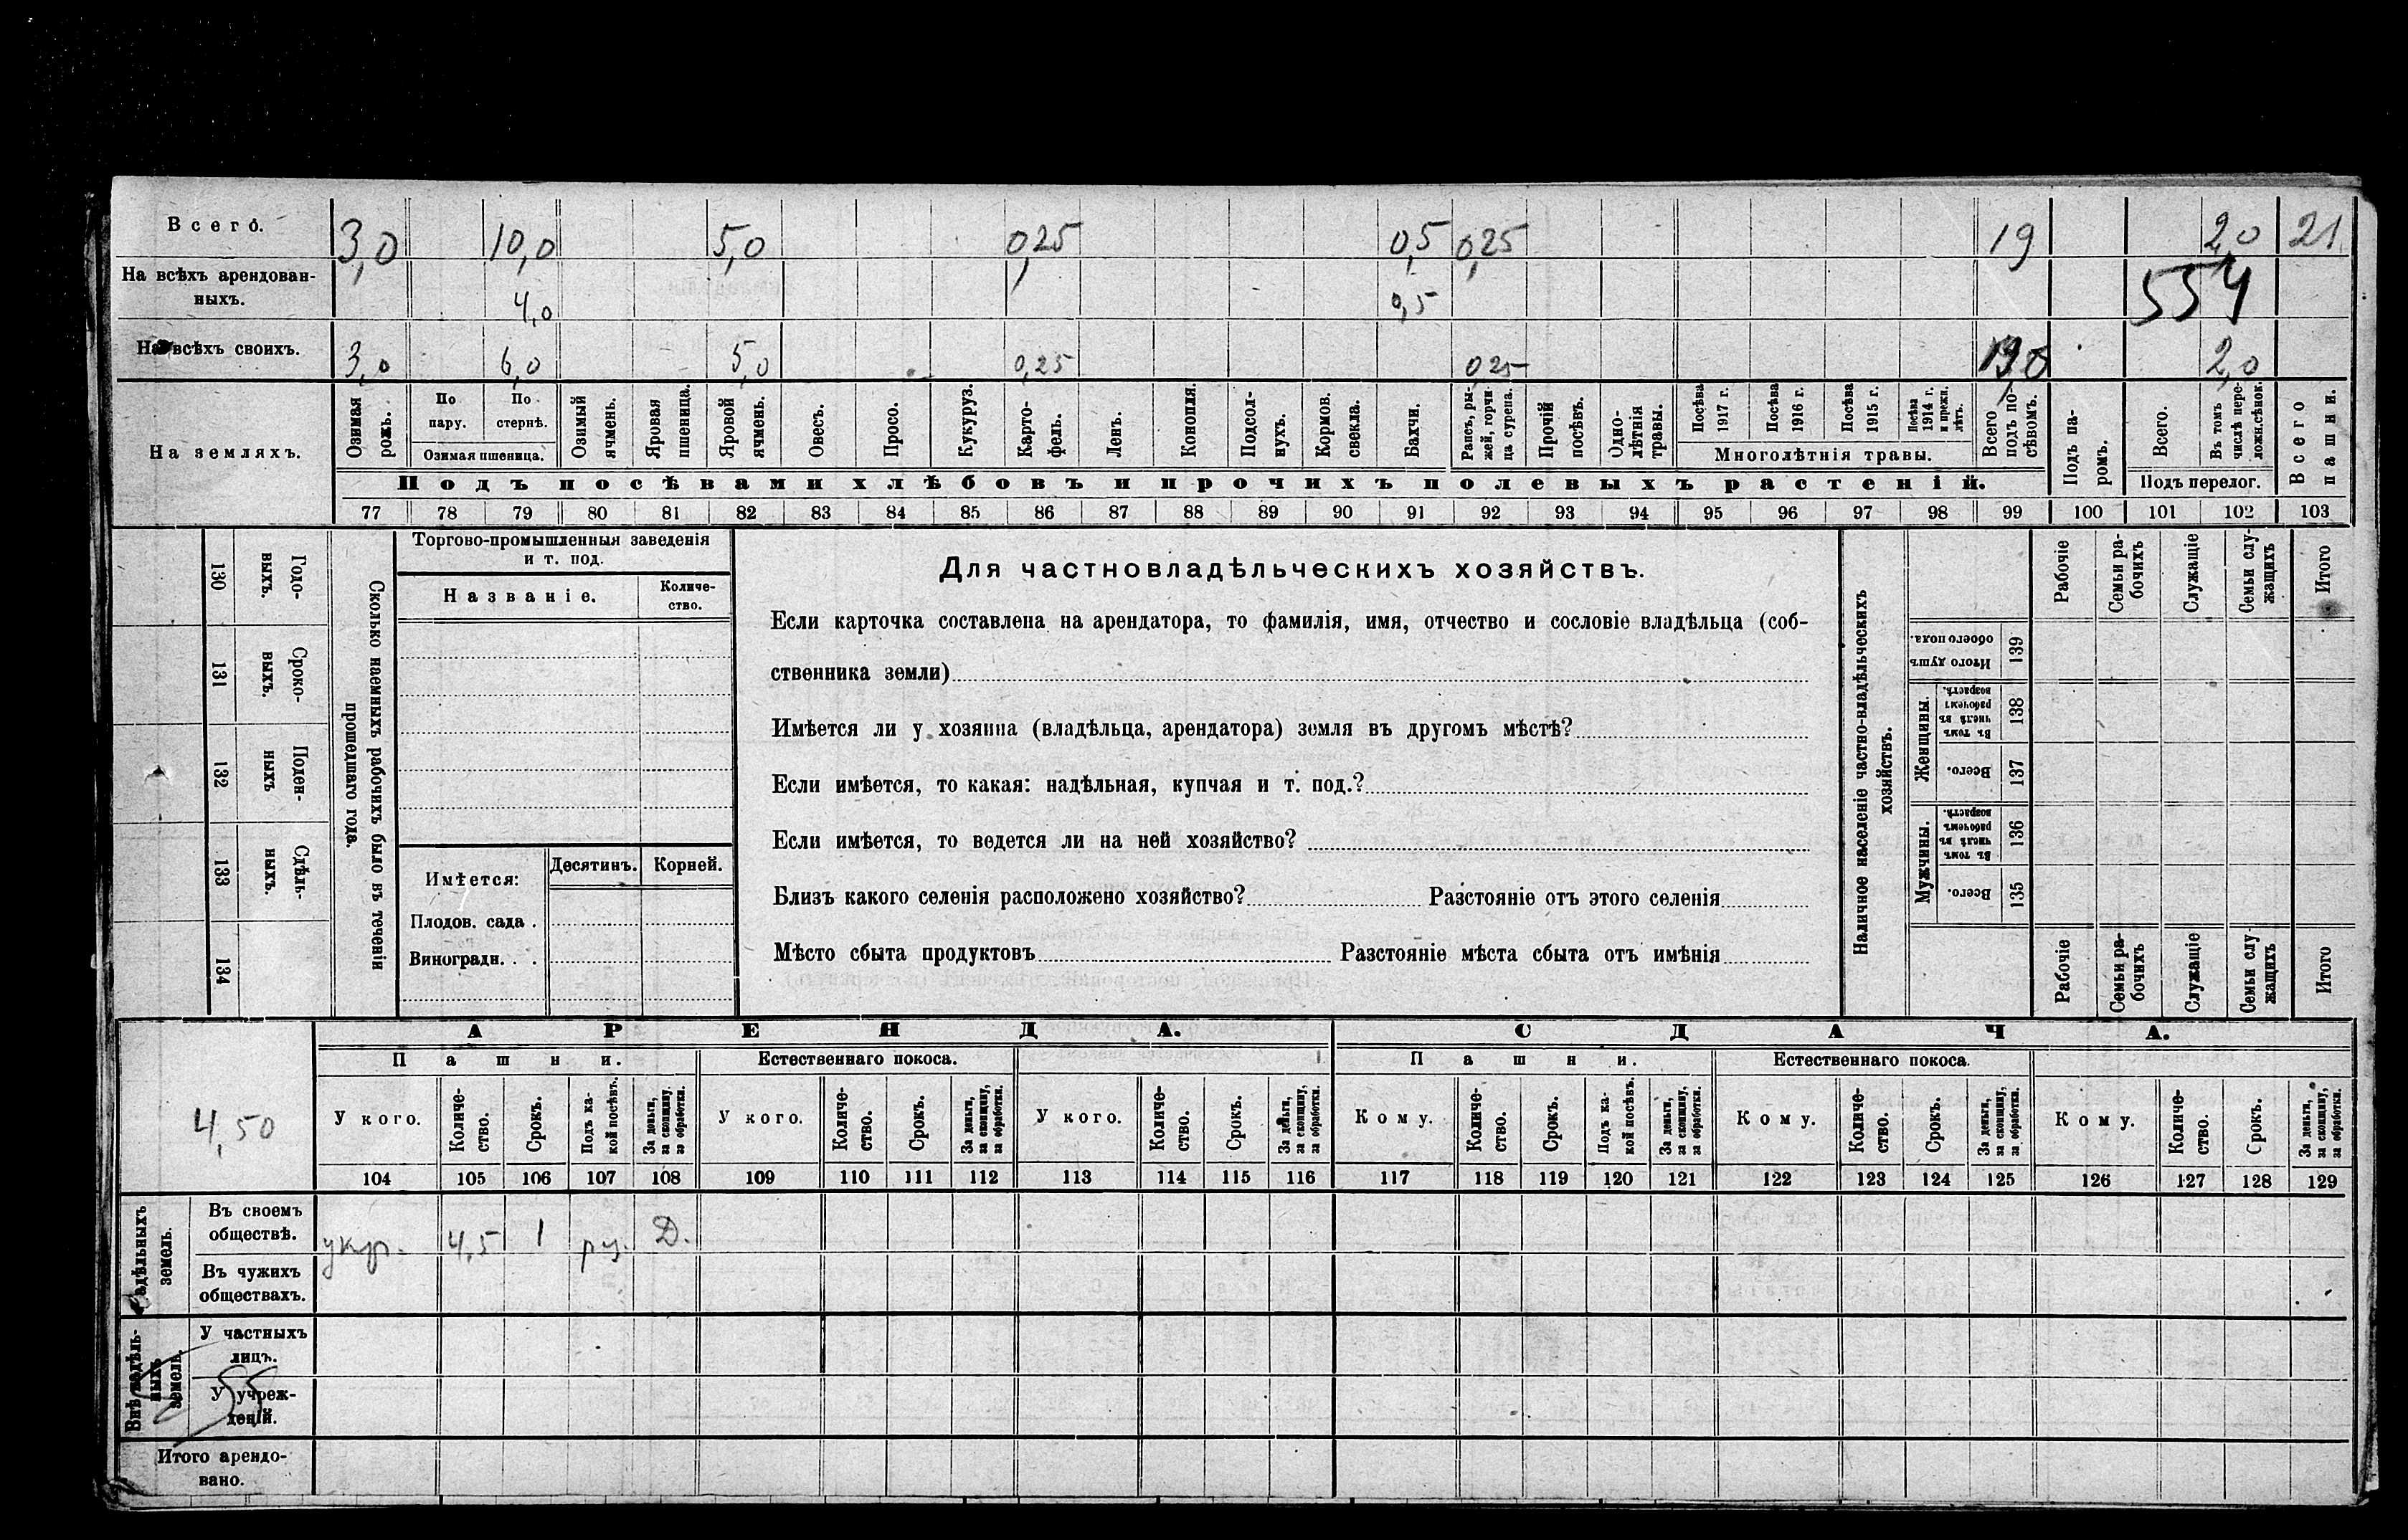 Всего. 3,0 10,0 5,0 0,25 0,5 0,25 19 2,0 21
На всѣхъ арендован-
ныхъ. 4,0 0,5 554
На всѣхъ своихъ. 3,0 6,0 5,0 0,25 0,25 2,0
На земляхъ.
Озимая рожь.
По пару.
По стернѣ.
Озимая пшеница.
Озимый ячмень.
Яровая пшеница.
Яровой ячмень.
Овесъ.
Просо.
Кукуруз.
Карто-
фель.
Ленъ.
Конопля.
Подсол-
нухъ.
Кормов. свекла.
Бахчи.
Рапсъ, ры-
жей, горчи-
ца сурепа.
Прочій посѣвъ.
Одно-
лѣтнія травы.
Посѣва 1917 г.
Посѣва 1916 г.
Посѣва 1915 г.
Посѣва 1914 г. и прежн. лѣтъ.
Многолѣтнія травы.
Всего подъ по-
сѣвомъ.
Подъ па-
ромъ.
Всего.
Въ томъ числѣ пере-
ложн.сѣнок.
Подъ перелог.
Всего пашни.
Подъ посѣвами хлѣбовъ и прочихъ полевыхъ растеній.
77 78 79 80 81 82 83 84 85 86 87 88 89 90 91 92 93 94 95 96 97 98 99 100 101 102 103
130 Годо-
выхъ.
131 Сроко-
выхъ.
132 Поден-
ныхъ
133 Сдѣль-
ныхъ.
134
Сколько наемныхъ рабочихъ было въ теченіи
прошедшаго года.
Торгово-промышленныя заведенія
и т. под.
Названіе.
Количе-
ство.
Имѣется:
Десятинъ.
Корней.
Плодов. сада .
Виноградн. . .
Для частновладѣльческихъ хозяйствъ.
Если карточка составлена на арендатора, то фамилія, имя, отчество и сословіе владѣльца (соб-
ственника земли)
Имѣется ли у хозяина (владѣльца, арендатора) земля въ другомъ мѣстѣ?
Если имѣется, то какая: надѣльная, купчая и т. под.?
Если имѣется, то ведется ли на ней хозяйство?
Близъ какого селенія расположено хозяйство? Разстояніе отъ этого селенія
Мѣсто сбыта продуктовъ Разстояніе мѣста сбыта отъ имѣнія
Наличное населеніе частно-владѣльческихъ
хозяйствъ.
Рабочіе
Семьи ра-
бочихъ
Служащіе
Семьи слу-
жащихъ
Итого
Итого душъ обоего пола. 139
Женщины.
Въ томъ числѣ въ рабочемъ возрастѣ. 138
Всего. 137
Мужчины.
Въ томъ числѣ въ рабочемъ возрастѣ. 136
Всего. 135
Рабочіе
Семьи ра-
бочихъ
Служащіе
Семьи слу-
жащихъ
Итого
4,50
АРЕНДА.
СДАЧА.
Пашни.
Естественнаго покоса.
Пашни.
Естественнаго покоса.
У кого.
Количе-
ство.
Срокъ.
Подъ ка-
кой посѣвъ.
За деньги, за скопщину, за обработки.
У кого.
Количе-
ство.
Срокъ.
За деньги, за скопщину, за обработки.
У кого.
Количе-
ство.
Срокъ.
За деньги, за скопщину, за обработки.
Кому.
Количе-
ство.
Срокъ.
Подъ ка-
кой посѣвъ.
За деньги, за скопщину, за обработки.
Кому.
Количе-
ство.
Срокъ.
За деньги, за скопщину, за обработки.
Кому.
Количе-
ство.
Срокъ.
За деньги, за скопщину, за обработки.
104 105 106 107 108 109 110 111 112 113 114 115 116 117 118 119 120 121 122 123 124 125 126 127 128 129
Надѣльныхъ земель.
Въ своемъ
обществѣ. укр. 4,5 1 Д.
Въ чужихъ
обществахъ.
Внѣ надѣль-
ныхъ земель.
У частныхъ
лицъ.
У учреж-
деній.
55
Итого арендо-
вано.